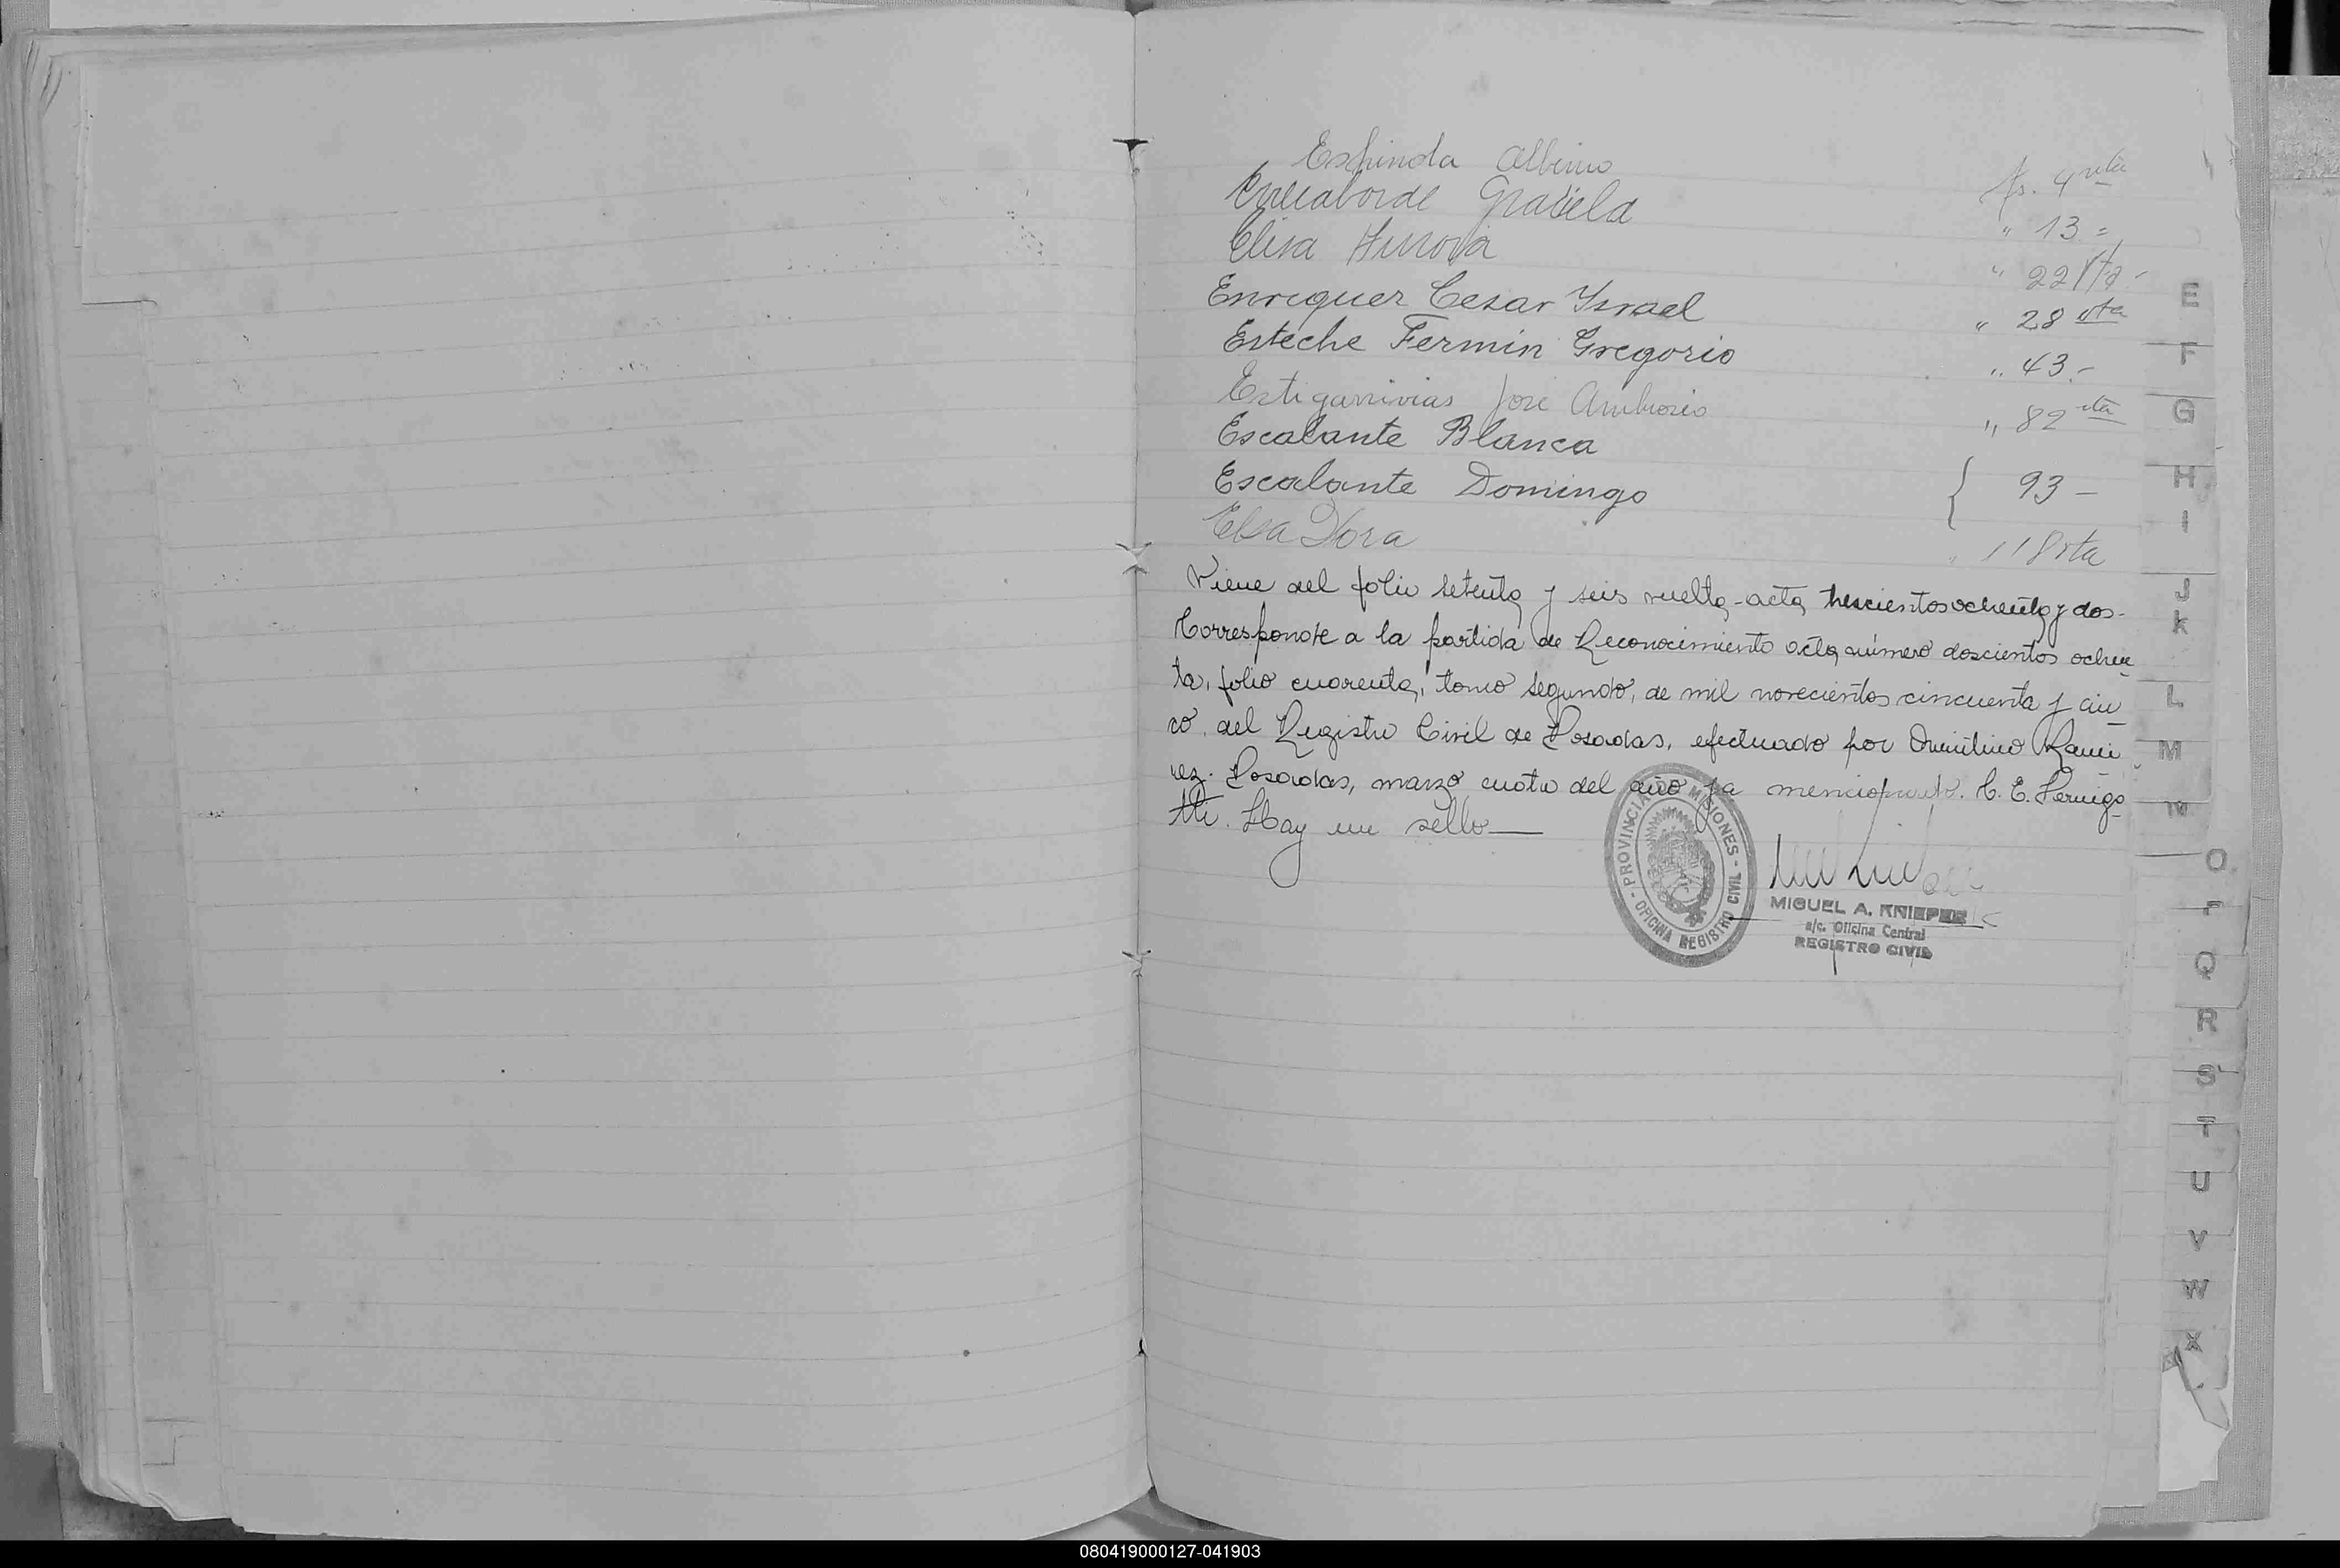 Espinola Albino fs. 4 vta
Errecaborde Graciela " 13 =
Elisa Aurora " 22 Vta -
Enriquez Cesar Israel " 28 vta
Esteche Fermin Gregorio " 43.-
Estigarrivias José Ambrosio " 82 vta
Escalante Blanca
Escalante Domingo { 93 -
Elsa Dora " 118 vta
Viene del folio setenta y seis vuelta - acta trescientos ochenta y dos -
Corresponde a la partida de Reconocimiento acta número doscientos ochen
ta, folio cuarenta, tomo segundo, de mil novecientos cincuenta y cin
co, del Registro Civil de Posadas, efectuado por Ramí
rez. Posadas, marzo cuatro del año ya mencionado. C. E.
Hay un sello —
- PROVINCIA DE MISIONES -
OFICINA REGISTRO CIVIL
MIGUEL A. KNIEPER
a/c. Oficina Central
REGISTRO CIVIL
E
F
G
H
I
J
K
L
M
N
O
P
Q
R
S
T
U
V
W
X
080419000127-041903